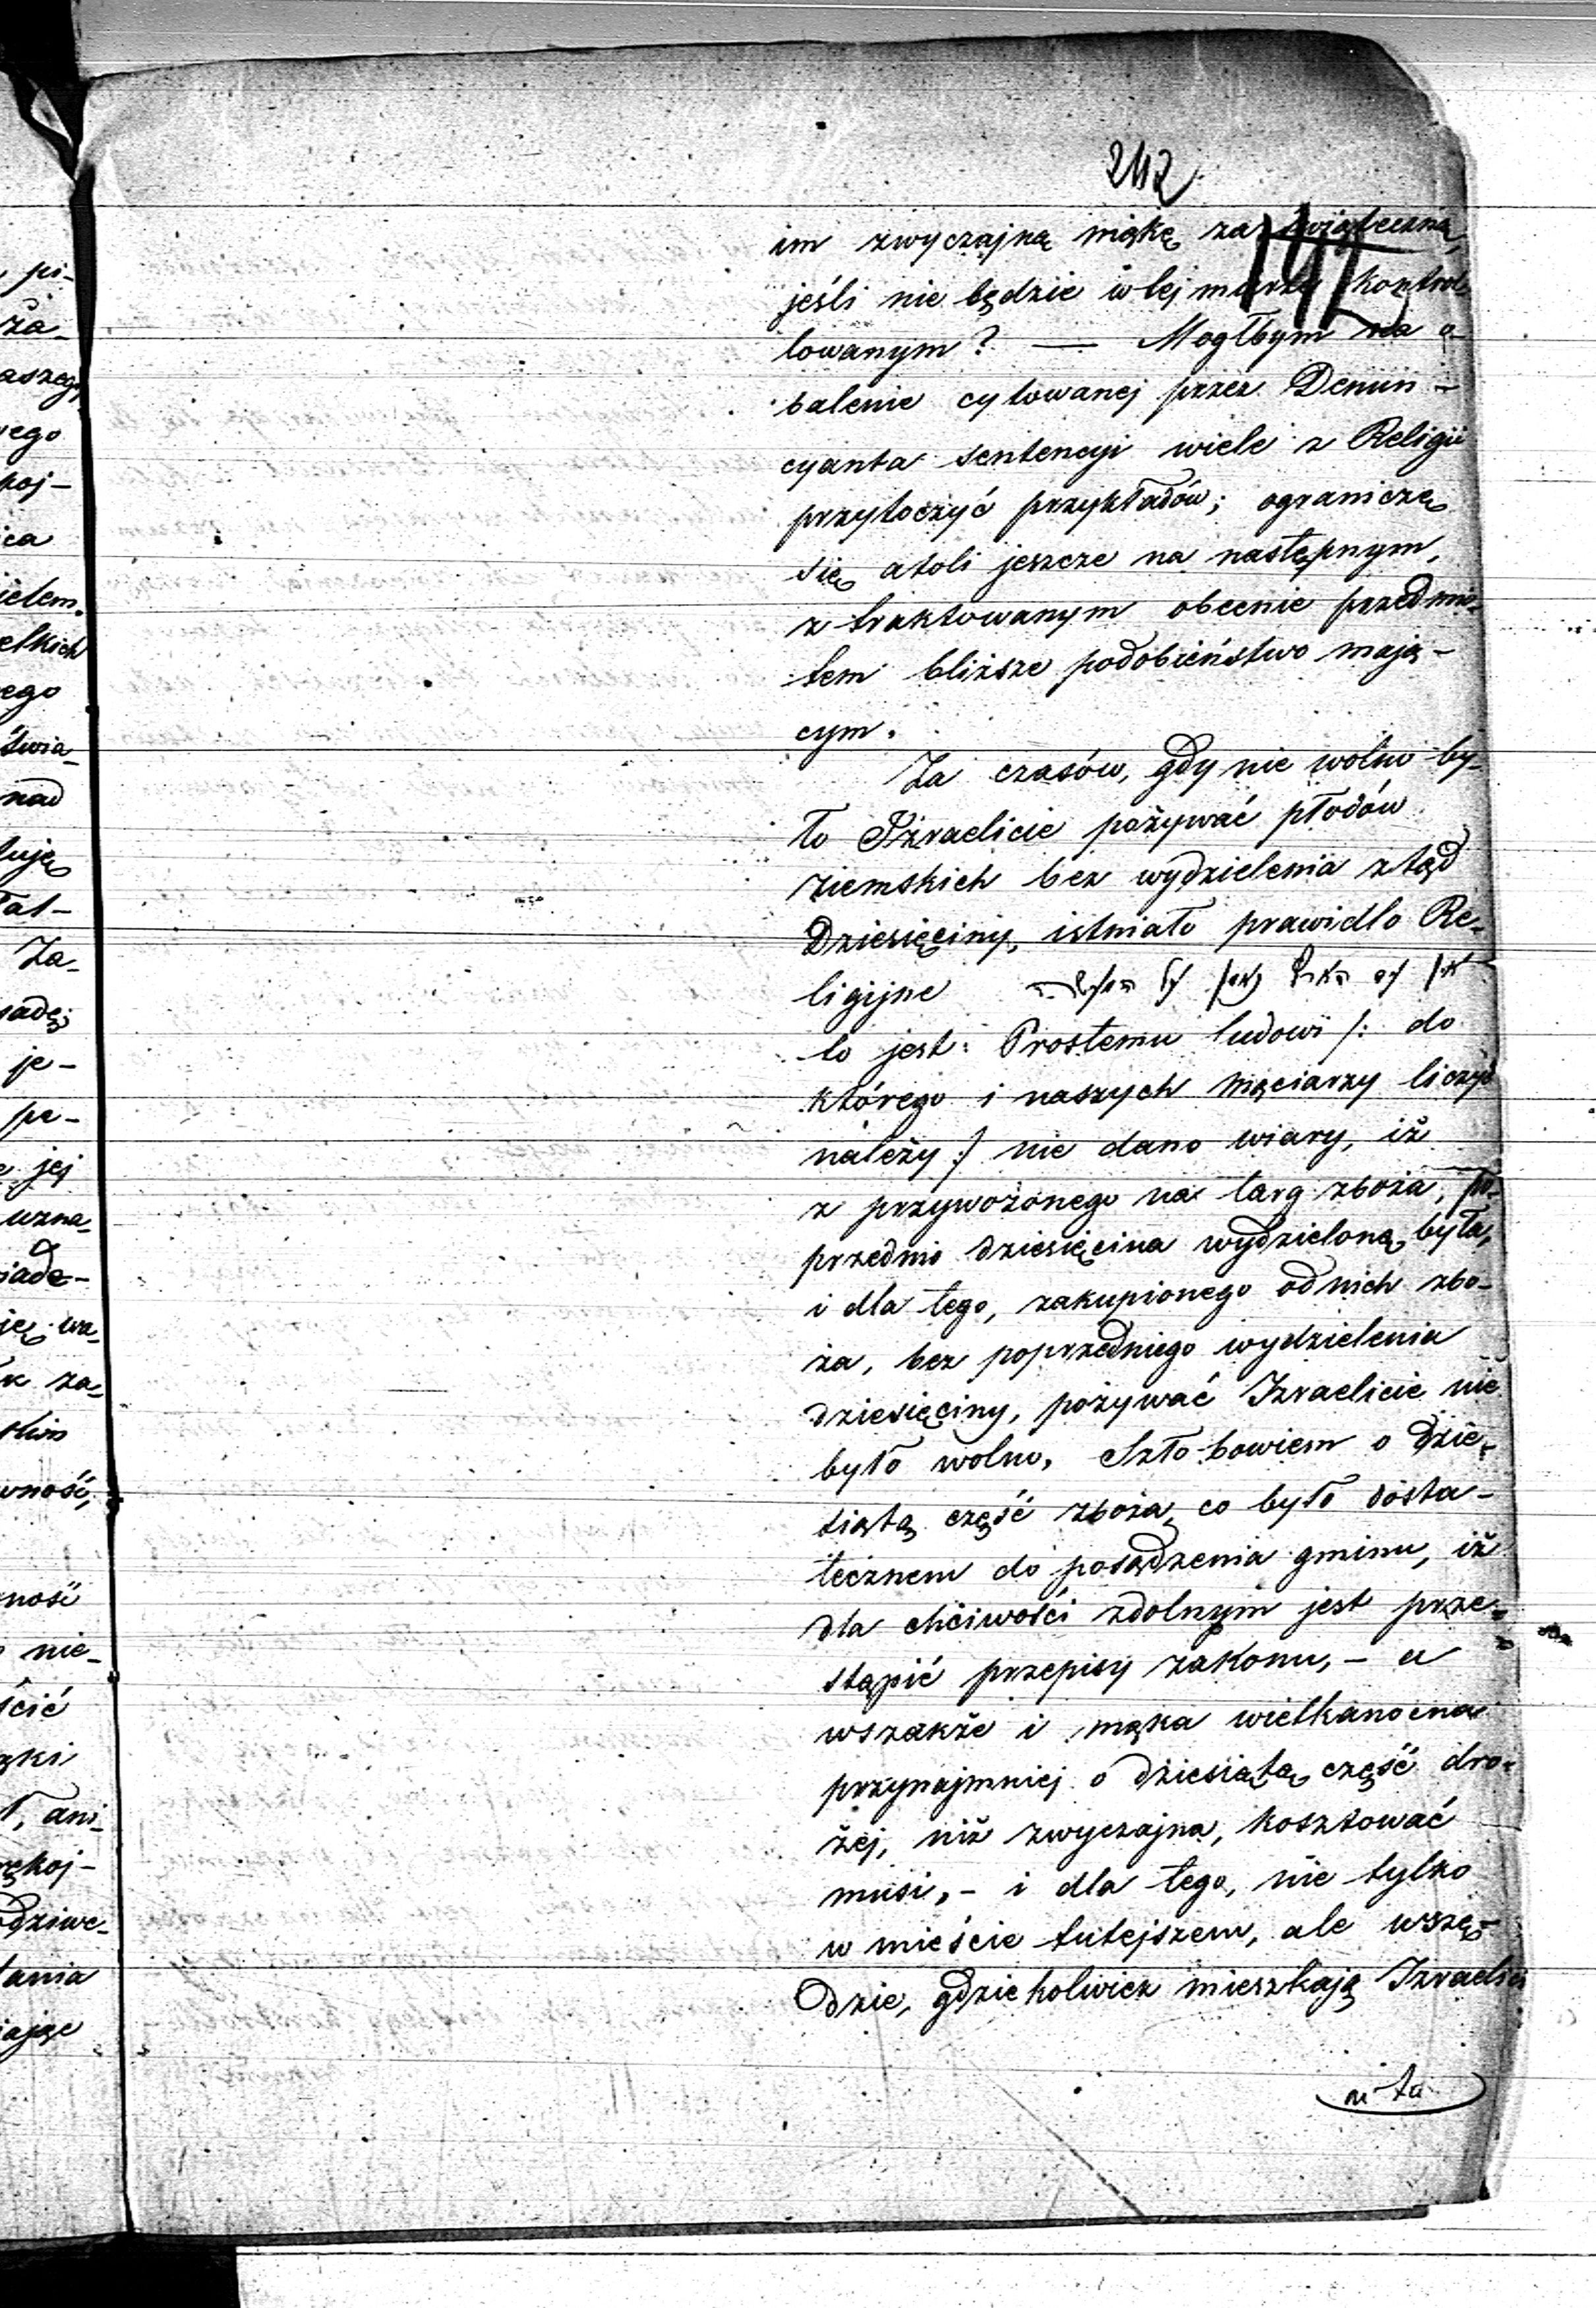 pi-
ża-
aszego
wego
koj-
ca
ielem.
elkich
ego
świa-
nad
tuję
łat-
Za-
sadę;
je-
pe-
jej
uzna-
iade-
ję wa-
k za-
skim
wność,
ność
nie-
ścić
ązki
ł, ani-
ękoj-
odziwe-
tania
iając
242
im zwyczajną mąkę za świąteczną,
jeśli nie będzie w tej mierze kontrol-
lowanym? — Mogłbym na o-
balenie cytowanej przez Denun-
cyanta sentencyi wiele z Religii
przytoczyć przykładów; ograniczę
się atoli jeszcze na następnym,
z traktowanym obecnie przedmio-
tem bliższe podobieństwo mają-
cym.
Za czasów, gdy nie wolno by-
ło Izraelicie pożywać płodów
ziemskich bez wydzielenia ztąd
Dziesięciny, istniało prawidło Re-
ligijne אין עם הארץ נאמן על
to jest: Prostemu ludowi /: do
którego i naszych mąciarzy liczyć
należy :/ nie dano wiary, iż
z przywożonego na targ zboża, po-
przednio dziesięcina wydzieloną była,
i dla tego, zakupionego od nich zbo-
ża, bez poprzedniego wydzielenia
dziesięciny, pożywać Izraelicie nie
było wolno. Szło bowiem o dzie-
siątą część zboża, co było dosta-
tecznem do posądzenia gminu, iż
dla chciwości zdolnym jest prze-
stąpić przepisy zakonu, - a
wszakże i mąka wielkanocna
przynajmniej o dziesiątą część dro-
żej, niż zwyczajna, kosztować
musi, - i dla tego, nie tylko
w mieście tutejszem, ale wszę-
dzie, gdziekolwiek mieszkają Izraelici